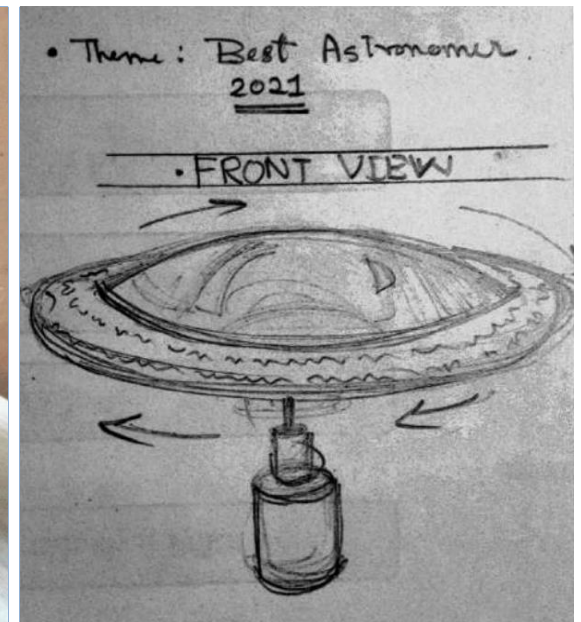 • Theme : Best Astronomer.
2021
• FRONT VIEW